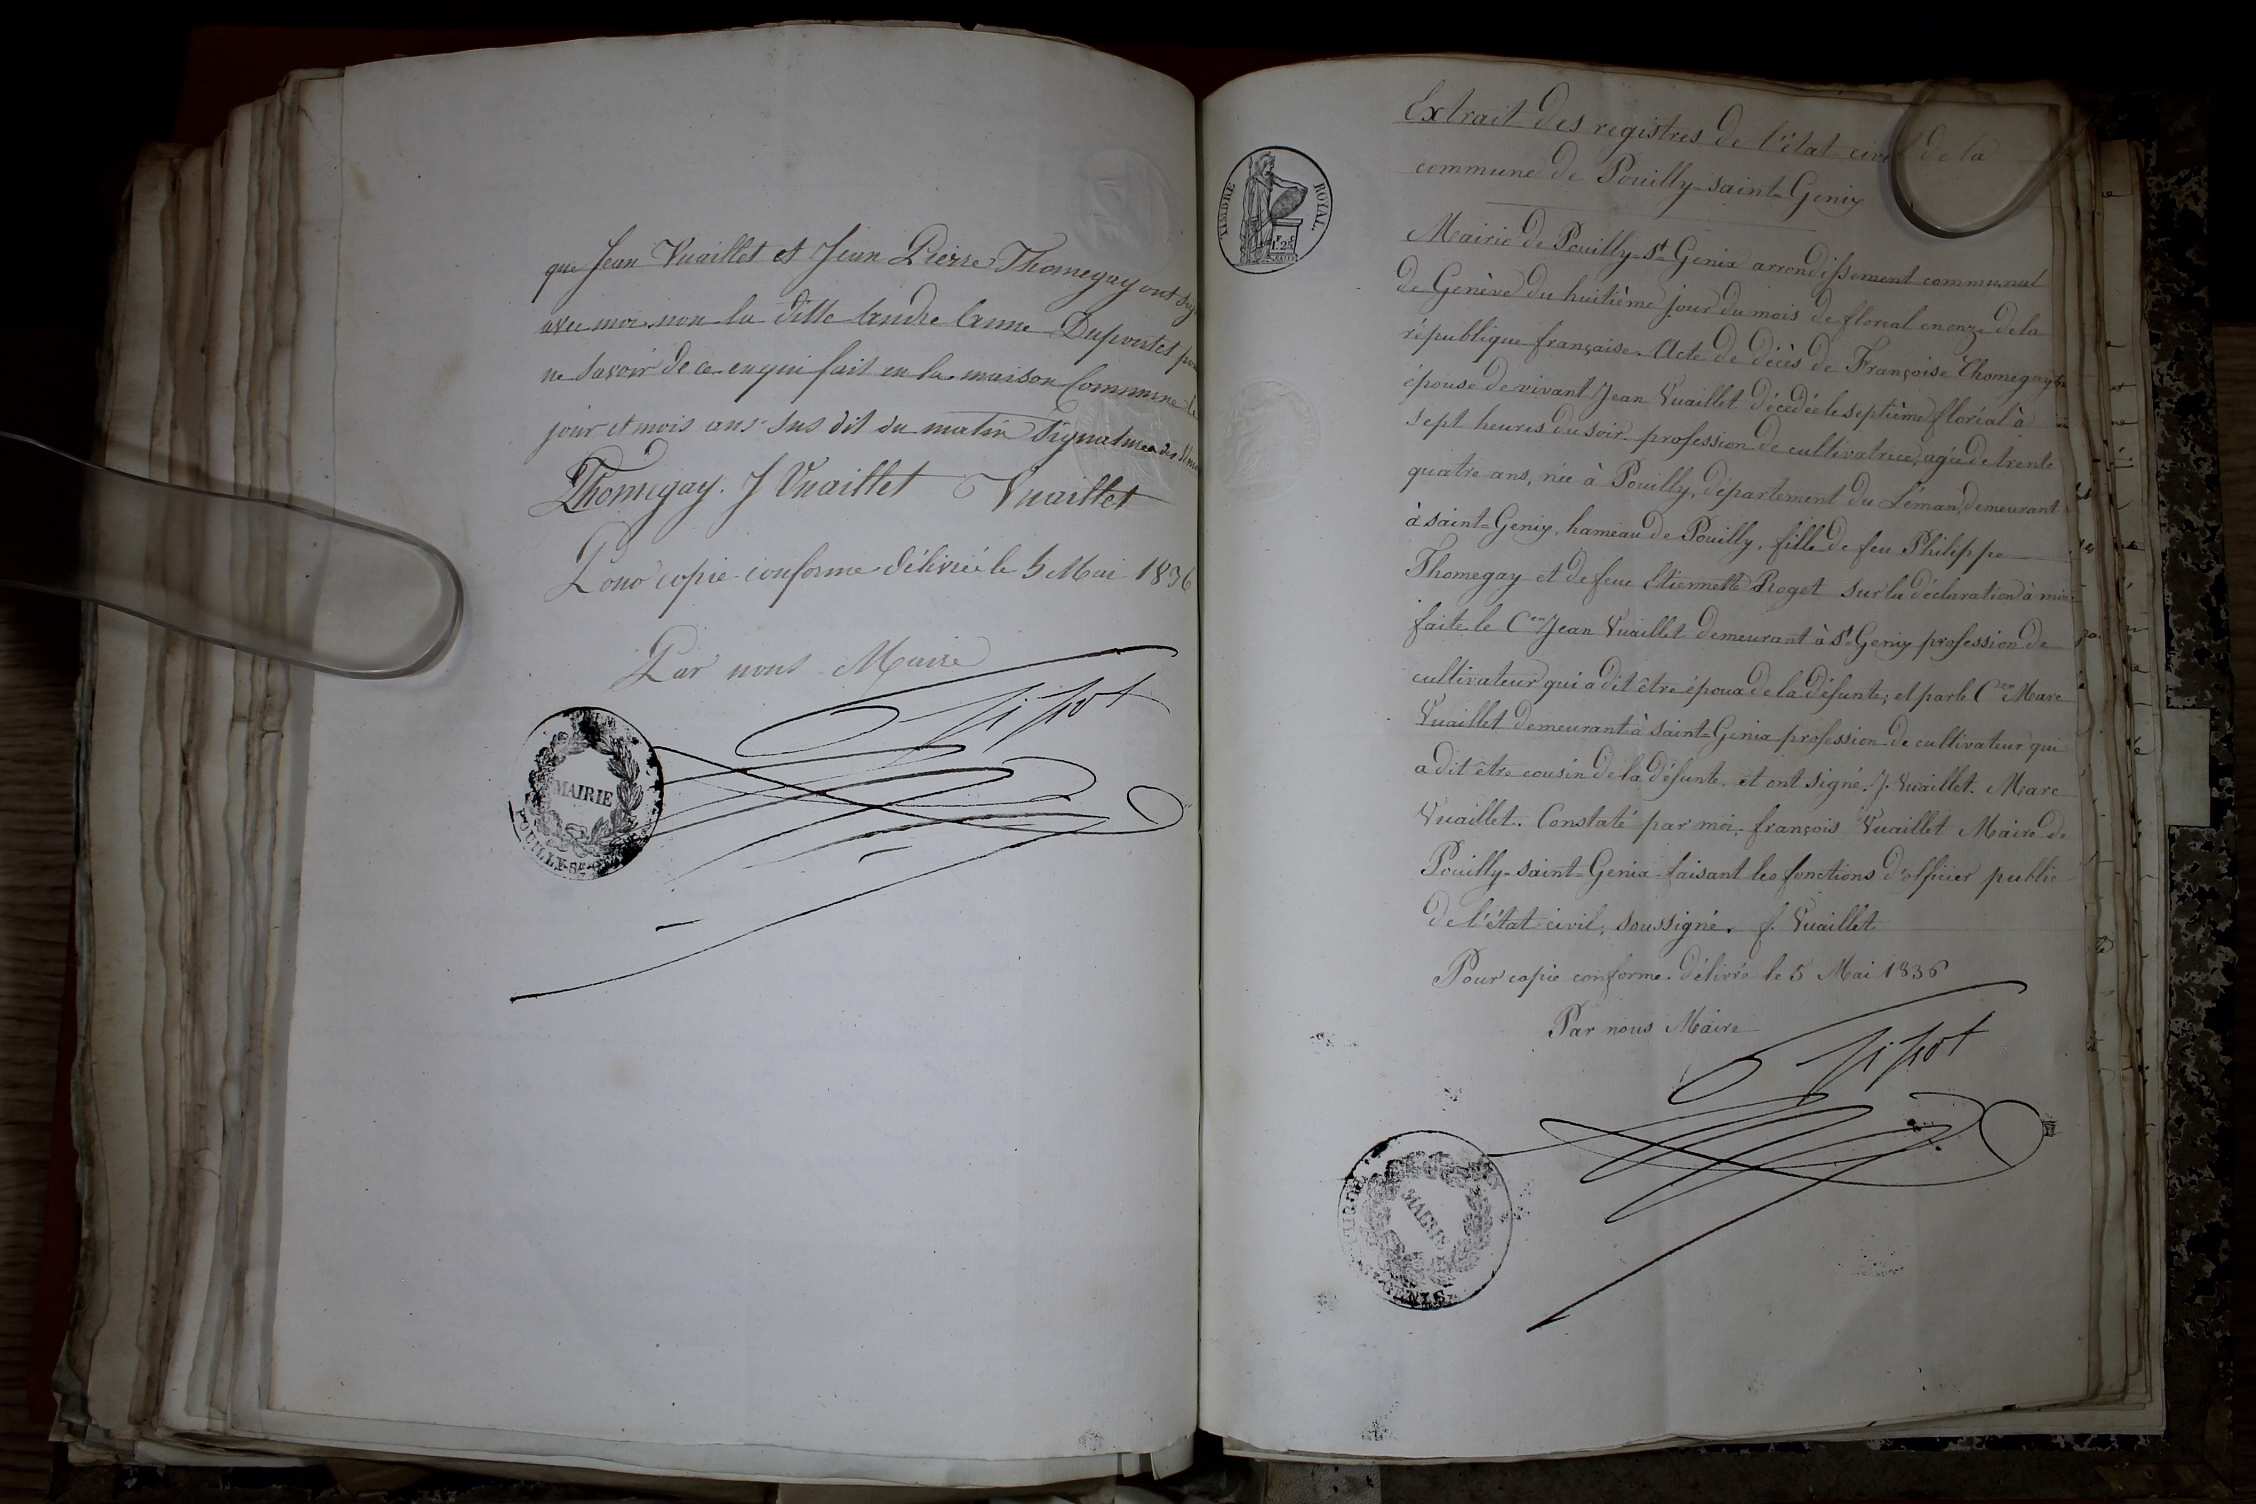 que Jean Vuaillet et Jean Pierre Thomegay ont
avec moi non la ditte Anne Dupontet
ne Savoir de ce enquis fait en la maison Commune le
jour et mois ans sus dit du matin Signatures des
Thomegay. J Vuaillet Vuaillet
Pour copie conforme délivrée le 5 Mai 1836
Par nous Maire
MAIRIE
POUILLY-St-
TIMBRE ROYAL
Extrait des registres de l'état civil de la
commune de Pouilly-saint-Genix
Mairie de Pouilly-St-Genix arrondissement communal
de Genève du huitième jour du mois de floréal en onze de la
république française. Acte de décès de Françoise Thomegay
épouse de vivant Jean Vuaillet décédée le septième floréal à
sept heures du soir profession de cultivatrice, agée de trente
quatre ans, née à Pouilly, département du Léman, demeurant
à saint-Genix, hameau de Pouilly, fille de feu Philippe
Thomegay et de feue Etiennette Roget sur la déclaration à moi
faite le Cen Jean Vuaillet demeurant à St Genix profession de
cultivateur qui a dit être époux de la défunte; et par le Cen Marc
Vuaillet demeurant à saint-Genix profession de cultivateur qui
a dit être cousin de la défunte. et ont signé. J. Vuaillet. Marc
Vuaillet. Constaté par moi, françois Vuaillet Maire de
Pouilly-saint-Genix faisant les fonctions d'officier public
de l'état civil, soussigné. f. Vuaillet
Pour copie conforme. délivré le 5 Mai 1836
Par nous Maire
MAIRIE